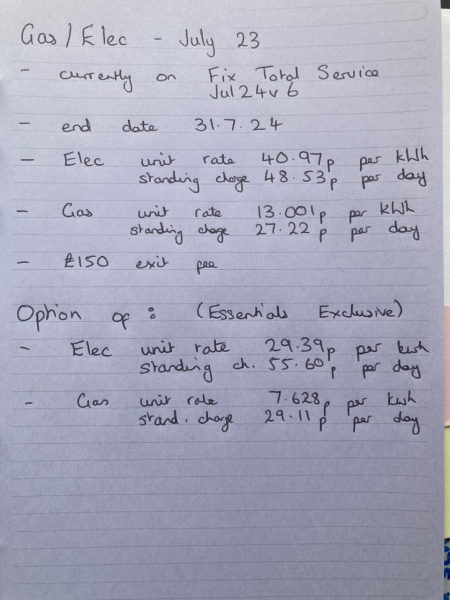 Gas/Elec - July 23
- currently on Fix Total Service
Jul24v6
- end date 31.7.24
- Elec unit rate 40.97p per kWh
standing charge 48.53p per day
- Gas unit rate 13.001p per kWh
standing charge 27.22p per day
- £150 exit fee
Option of: (Essentials Exclusive)
- Elec unit rate 29.39p per kwh
standing ch. 55.60p per day
- Gas unit rate 7.628p per kwh
stand. charge 29.11p per day